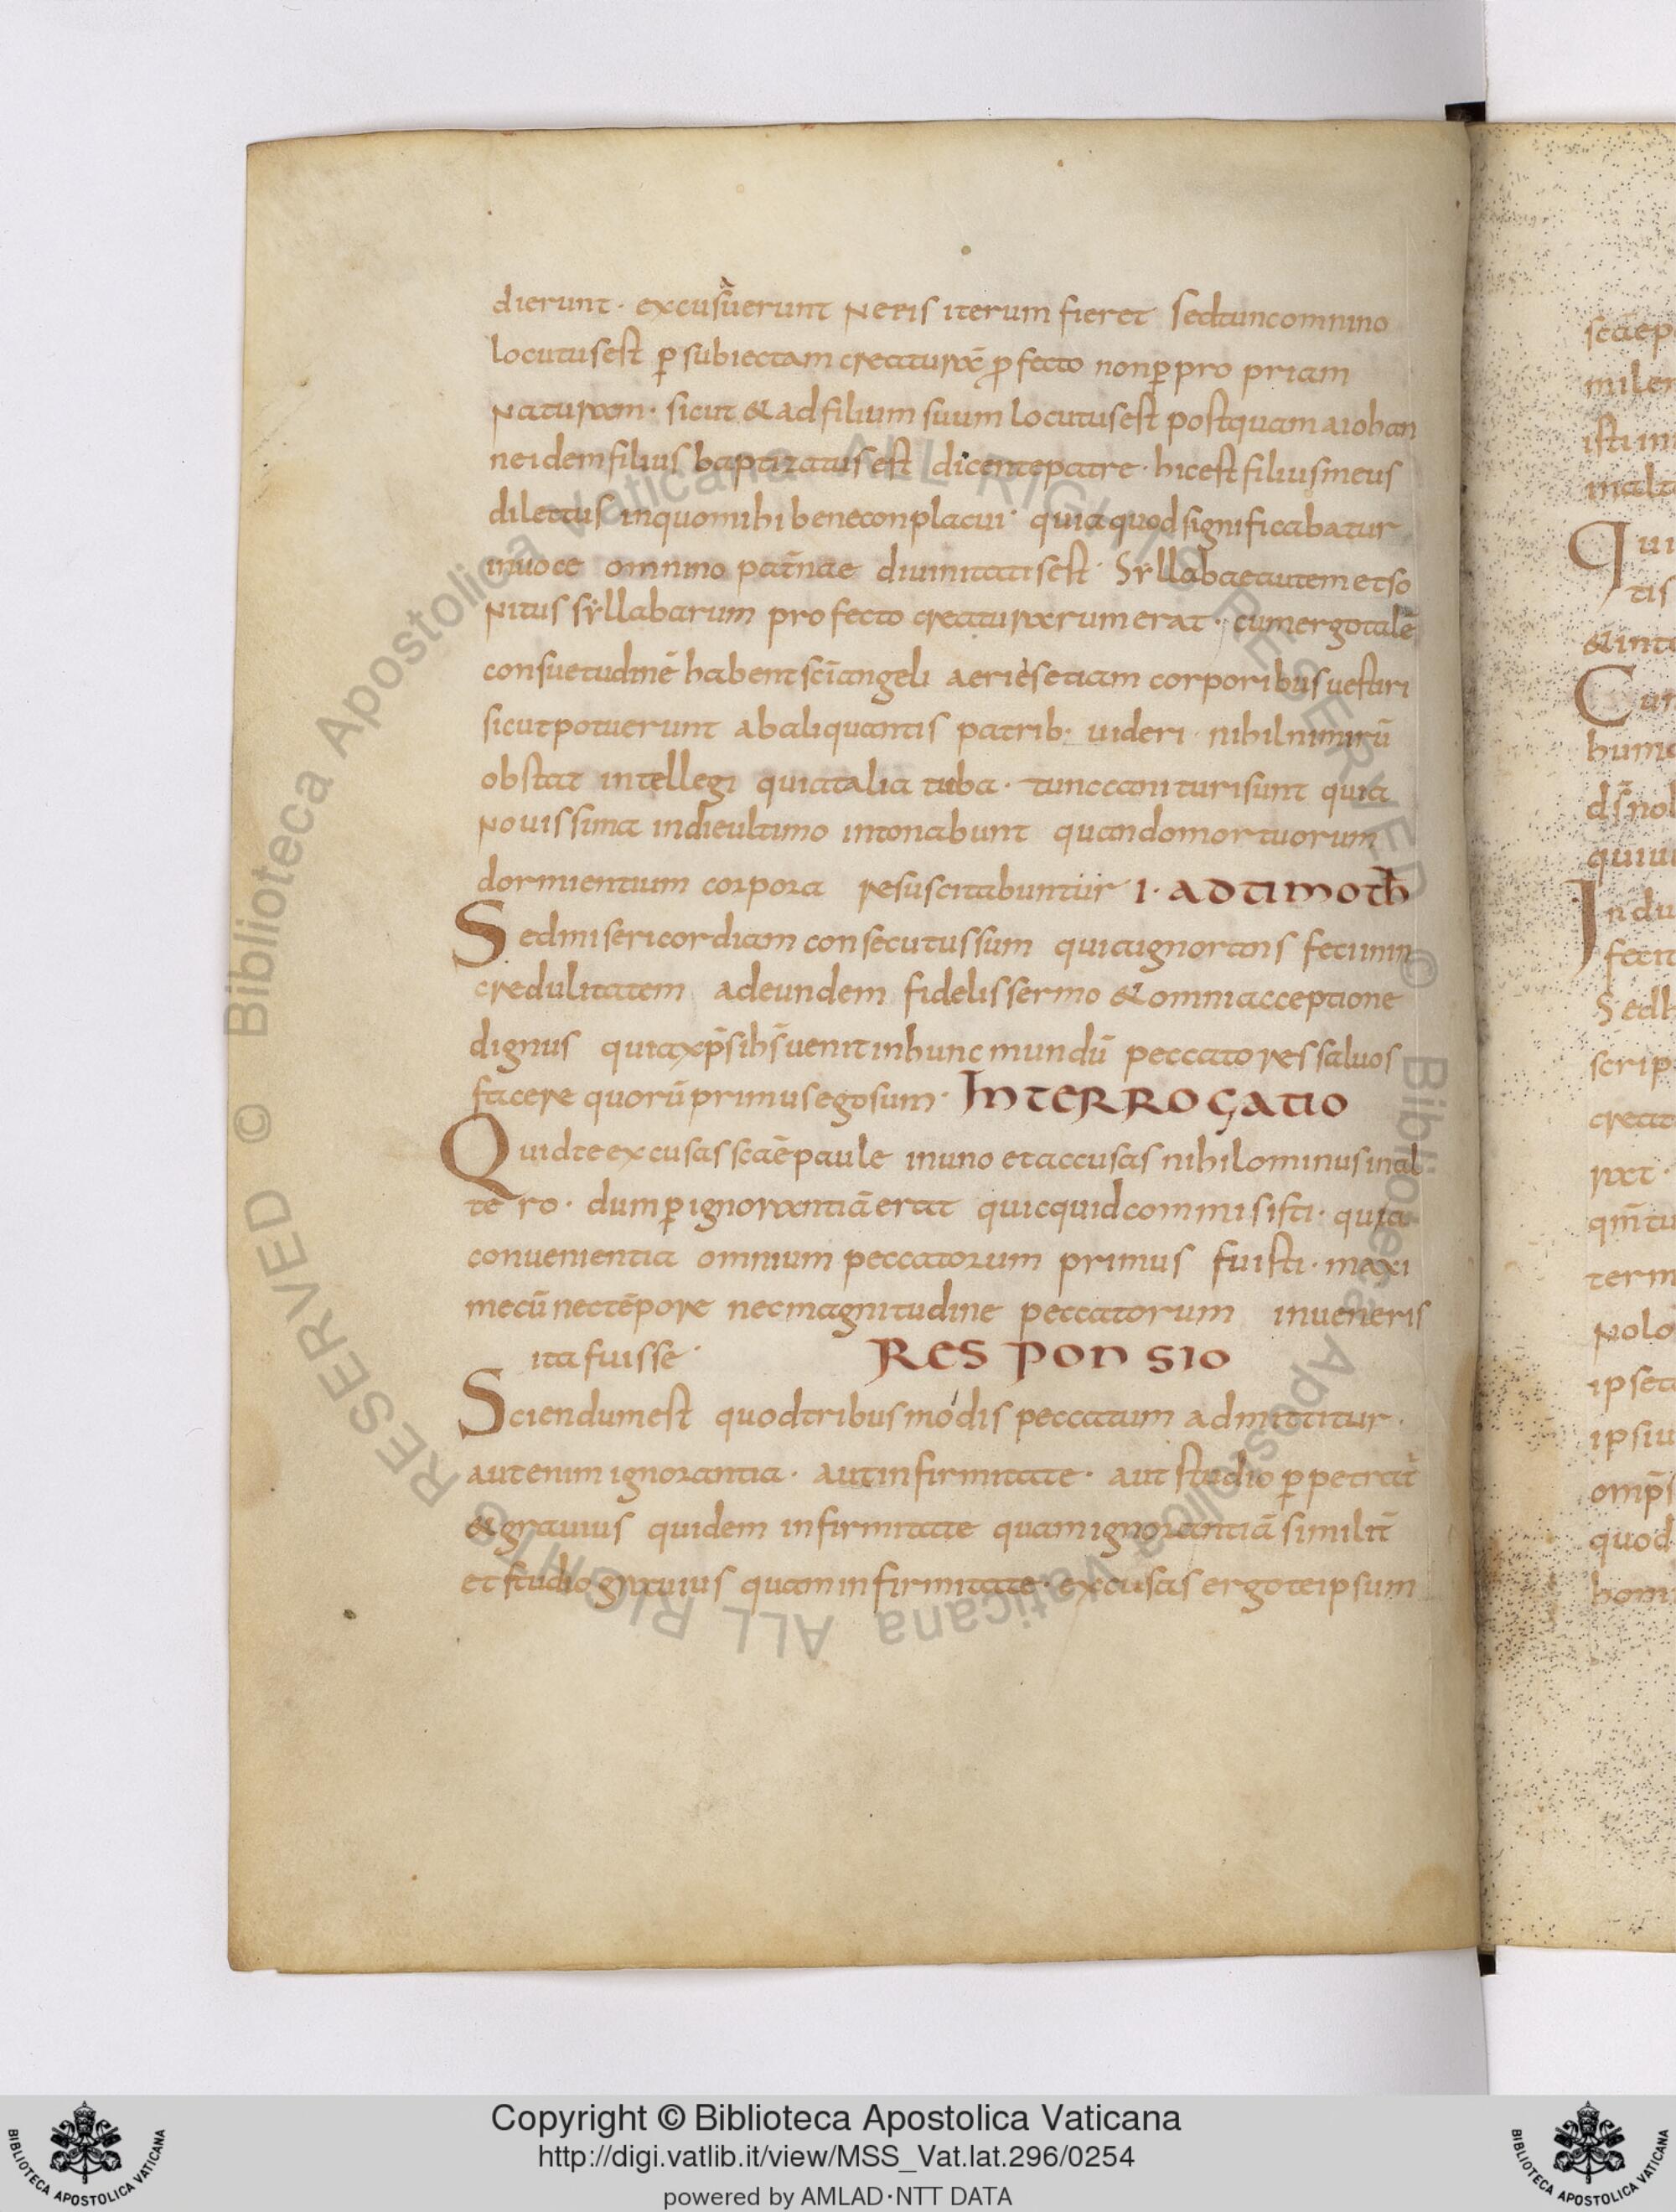 dierunt · excusaverunt Ne eis iterum fieret sed tunc omnino
locutus est p̱ subiectam creaturā ꝓfecto non p̱ propriam
Naturam · sicut & ad filium suum locutus est postquam a iohan
ne idem filius baptizatus est dicente patre · hic est filius meus
dilectus in quo mihi bene conplacui · quia quod significabatur
in uoce omnino pat̄nae diuinitatis est · Syllabae autem et so
Nitus syllabarum profecto creaturarum erat · cum ergo talē
consuetudinē habent sc̄i angeli aeriis etiam corporibus uestiri
sicut potuerunt ab aliquantis patrib· uideri · nihil nimirū
obstat intellegi quia talia tuba · tunc canituri sunt quia
Nouissima in die ultimo intonabunt quando mortuorum
dormientium corpora resuscitabuntur · I · AD TIMOTH̄
Sed misericordiam consecutus sum quia ignorans feci in in
credulitatem ad eundem fidelis sermo & omni acceptione
dignus quia xp̄s ih̄s uenit in hunc mundū peccatores saluos
facere quorū primus ego sum · INTERROGATIO
Quid te excusas sc̄ae paule in uno et accusas nihilominus in al
tero · dum p̱ ignorantiā erat quicquid commisisti · quia
conuenientia omnium peccatorum primus fuisti · maxi
me cū nec tēpore nec magnitudine peccatorum inueneris
ita fuisse · RESPONSIO
Sciendum est quod tribus modis peccatum admittitur ·
aut enim ignorantia · aut infirmitate · aut studio p̱petrat̄
& grauius quidem infirmitate quam ignorantiā similit̄
et studio grauius quam infirmitate · excusas ergo te ipsum
Copyright © Biblioteca Apostolica Vaticana
http://digi.vatlib.it/view/MSS_Vat.lat.296/0254
powered by AMLAD·NTT DATA
BIBLIOTECA APOSTOLICA VATICANA
BIBLIOTECA APOSTOLICA VATICANA
© Biblioteca Apostolica Vaticana ALL RIGHTS RESERVED
© Biblioteca Apostolica Vaticana ALL RIGHTS RESERVED